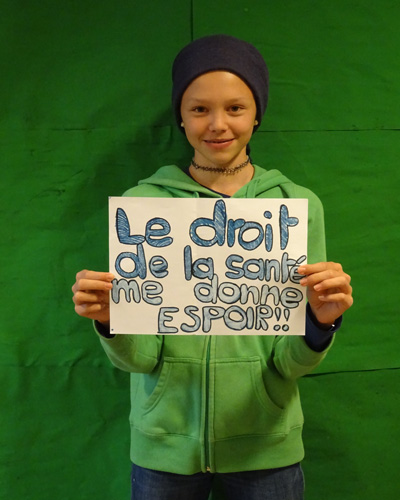 Le droit
de la santé
me donne
ESPOIR!!